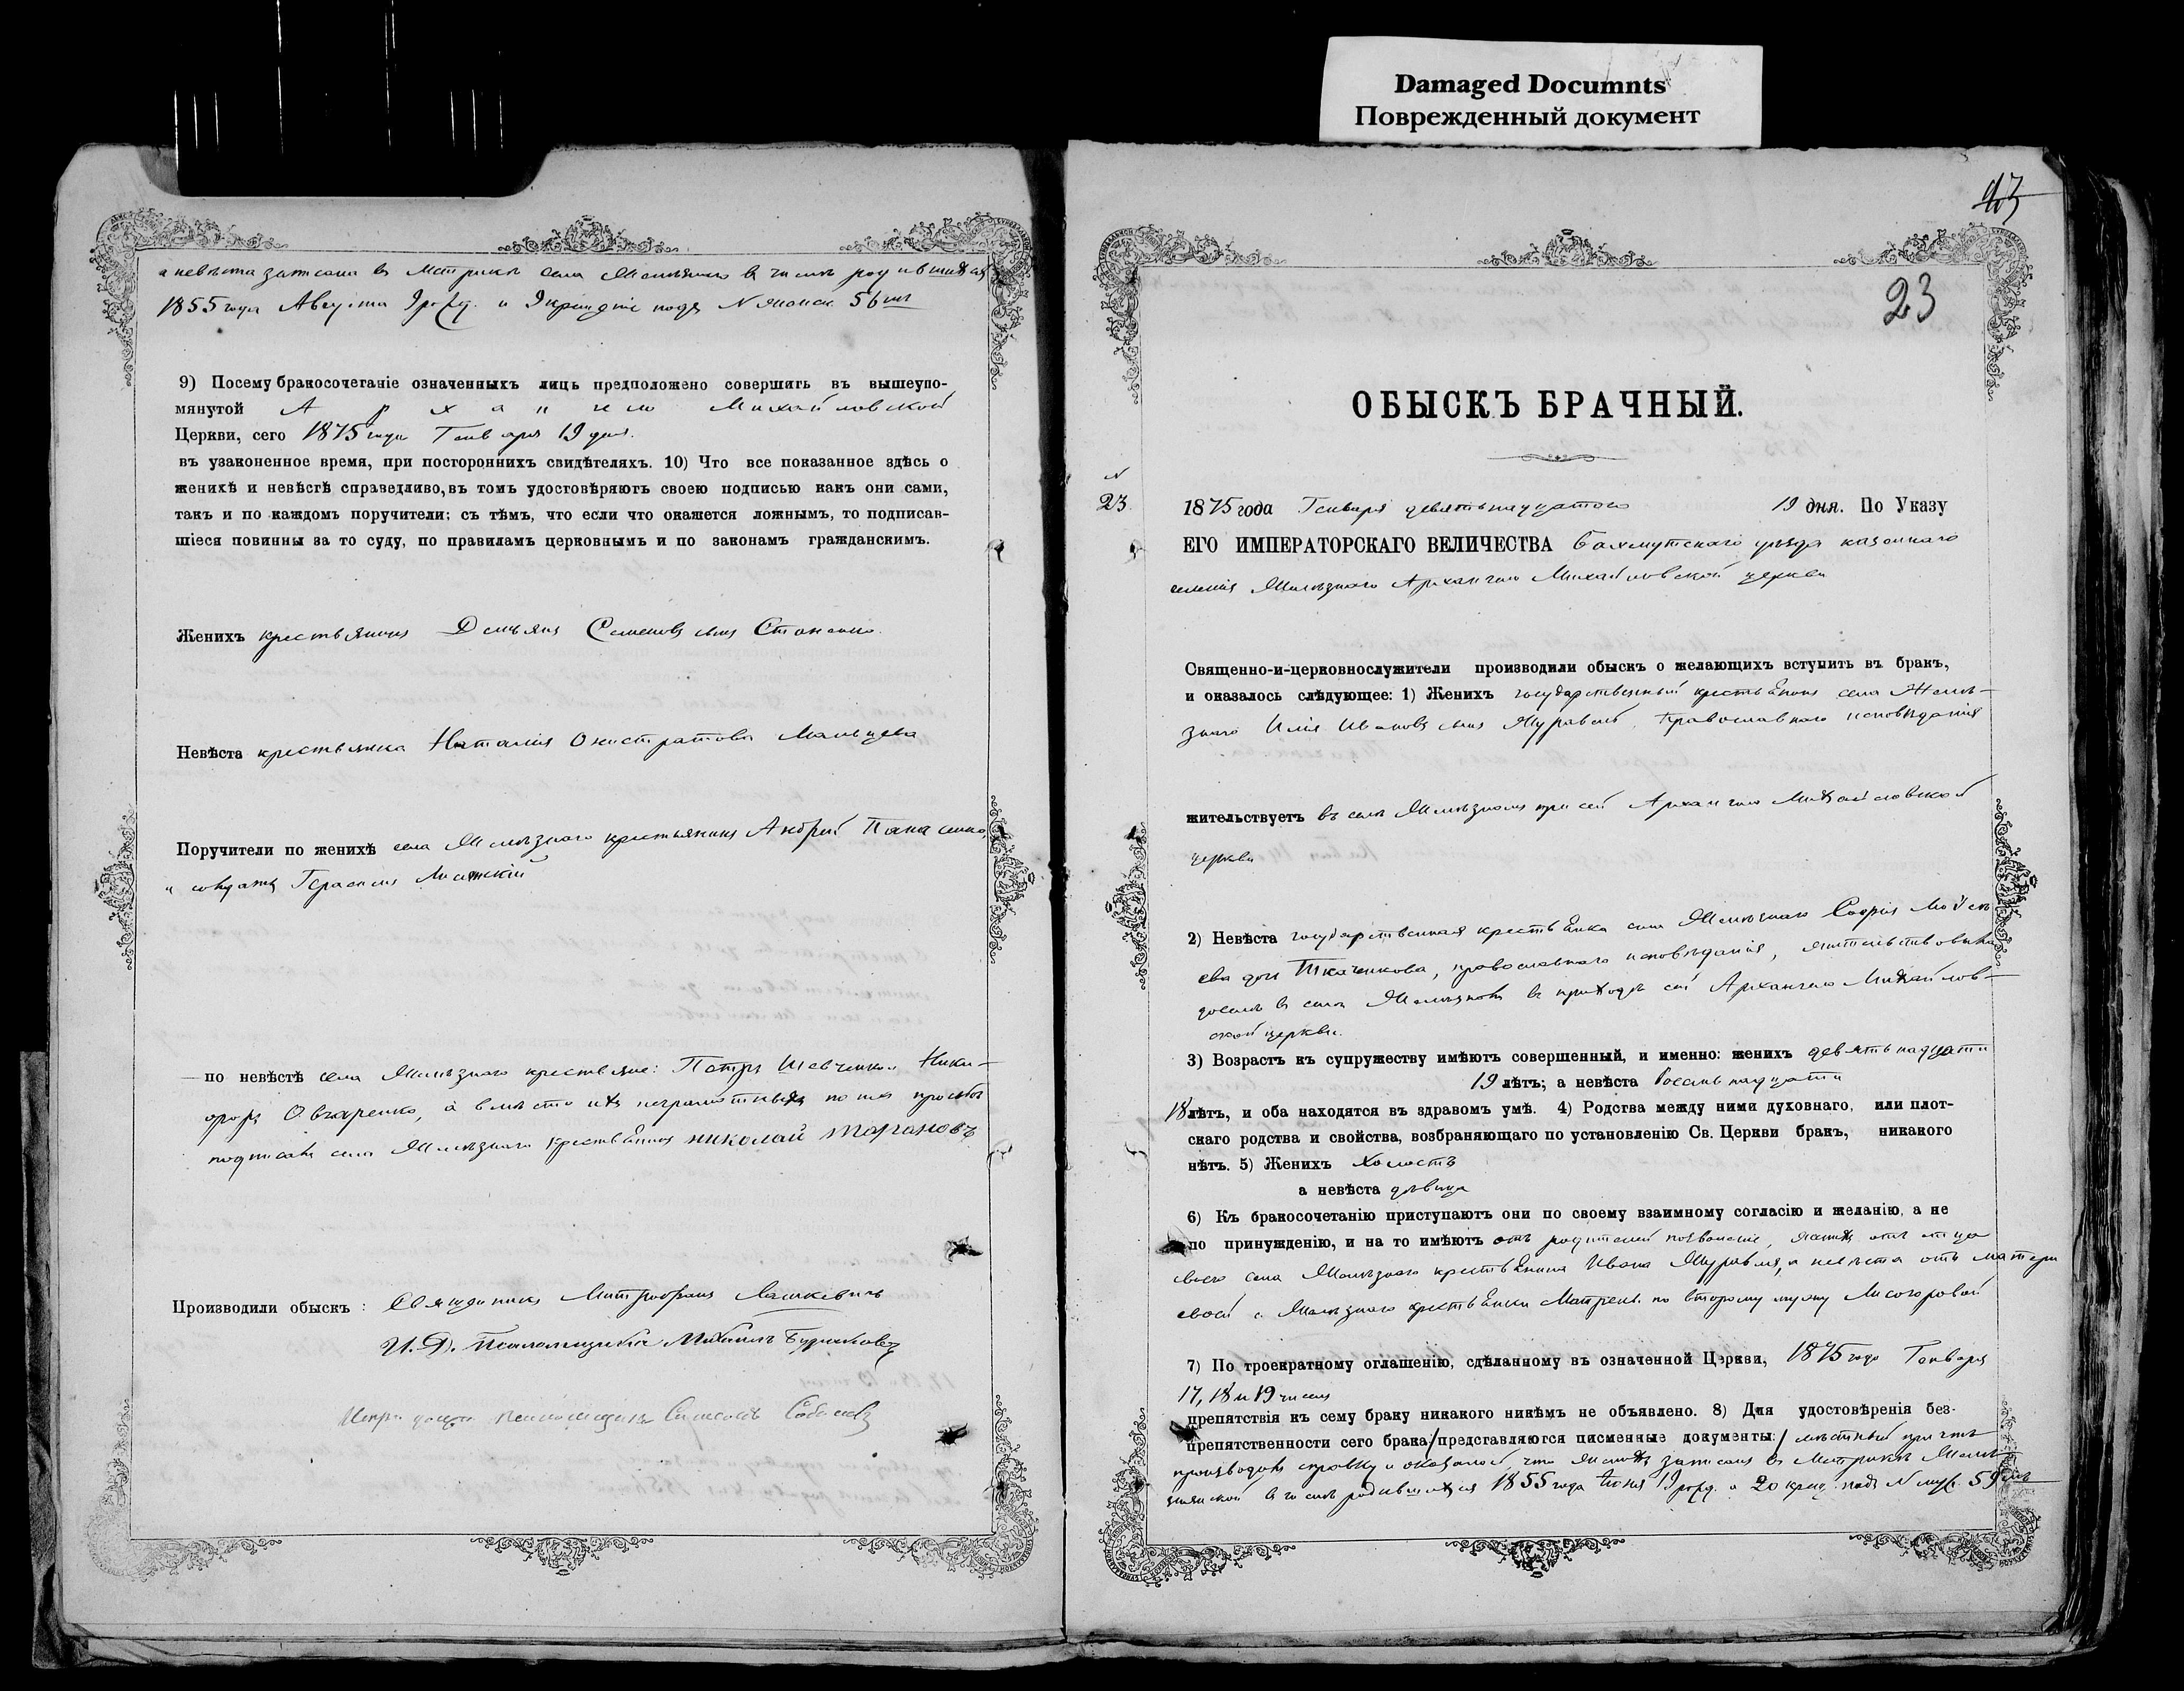 Damaged Documnts
Поврежденный документ
а невѣста записана въ Метрикѣ села Желѣзнаго въ числѣ родившихся
1855 года Августа 9 рожд. и 9 крещ. подъ N женск. 56
9) Посему бракосочетаніе означенныхъ лицъ предположено совершить въ вышеупо-
мянутой Архангело Михайловской
Церкви, сего 1875 года Генваря 19 дня.
въ узаконенное время, при постороннихъ свидѣтеляхъ. 10) Что все показанное здѣсь о
женихѣ и невѣстѣ справедливо, въ томъ удостовѣряютъ своею подписью какъ они сами,
такъ и по каждомъ поручители; съ тѣмъ, что если что окажется ложнымъ, то подписав-
шіеся повинны за то суду, по правиламъ церковнымъ и по законамъ гражданскимъ.
Женихъ крестьянинъ Демьянъ Семеновъ сынъ
Невѣста крестьянка Наталія Мальцева
Поручители по женихѣ села Желѣзнаго крестьянинъ Андрей Панасенко
и солдатъ Герасимъ
по невѣстѣ села Желѣзнаго крестьяне: Петръ Шевченко и Ники-
форъ Овчаренко, а вмѣсто ихъ неграмотныхъ по их просьбѣ
подписалъ села Желѣзнаго крестьянинъ николай таранов
Производили обыскъ: Священникъ Митрофанъ Лашкевичъ
И. Д. Псаломщика Михаилъ
псаломщикъ
43
23
ОБЫСКЪ БРАЧНЫЙ.
N
23
1875 года Генваря девятьнадцатого 19 дня. По Указу
ЕГО ИМПЕРАТОРСКАГО ВЕЛИЧЕСТВА Бахмутскаго уѣзда казеннаго
селенія Желѣзнаго Архангело Михайловской церкви
Священно-и-церковнослужители производили обыскъ о желающихъ вступить въ бракъ,
и оказалось слѣдующее: 1) Женихъ государственный крестьянинъ села Желѣ-
знаго Илія Ивановъ сынъ Журавль, Православнаго исповѣданія
жительствуетъ въ селѣ Желѣзномъ при сей Архангело Михайловской
церкви
2) Невѣста государственная крестьянка села Желѣзнаго Софія Мойсѣ
ева дочь Ткаченкова, православнаго исповѣданія, жительствовала
доселѣ въ селѣ Желѣзномъ въ приходѣ сей Архангело Михайлов-
ской церкви.
3) Возрастъ къ супружеству имѣютъ совершенный, и именно: женихъ девятьнадцати
19 лѣтъ; а невѣста восемьнадцати
18 лѣтъ, и оба находятся въ здравомъ умѣ. 4) Родства между ними духовнаго, или плот-
скаго родства и свойства, возбраняющаго по установленію Св. Церкви бракъ, никакого
нѣтъ. 5) Женихъ холостъ
а невѣста дѣвица
6) Къ бракосочетанію приступаютъ они по своему взаимному согласію и желанію, а не
по принужденію, и на то имѣютъ отъ родителей позволеніе, женихъ отъ отца
своего села Желѣзнаго крестьянина Ивана Журавля, а невѣста отъ матери
своей с. Желѣзнаго крестьянки Матрены по второму мужу Лисогоровой
7) По троекратному оглашенію, сдѣланному въ означенной Церкви, 1875 года Генваря
17, 18 и 19 чиселъ
препятствія къ сему браку никакого никѣмъ не объявлено. 8) Для удостовѣренія без-
препятственности сего брака/представляются писменные документы:/ мѣстный причтъ
производилъ справку и оказалось, что женихъ записанъ въ Метрикѣ Желѣ
знянской въ числѣ родившихся 1855 года Іюня 19 рожд. и 20 крещ. подъ N муж. 59